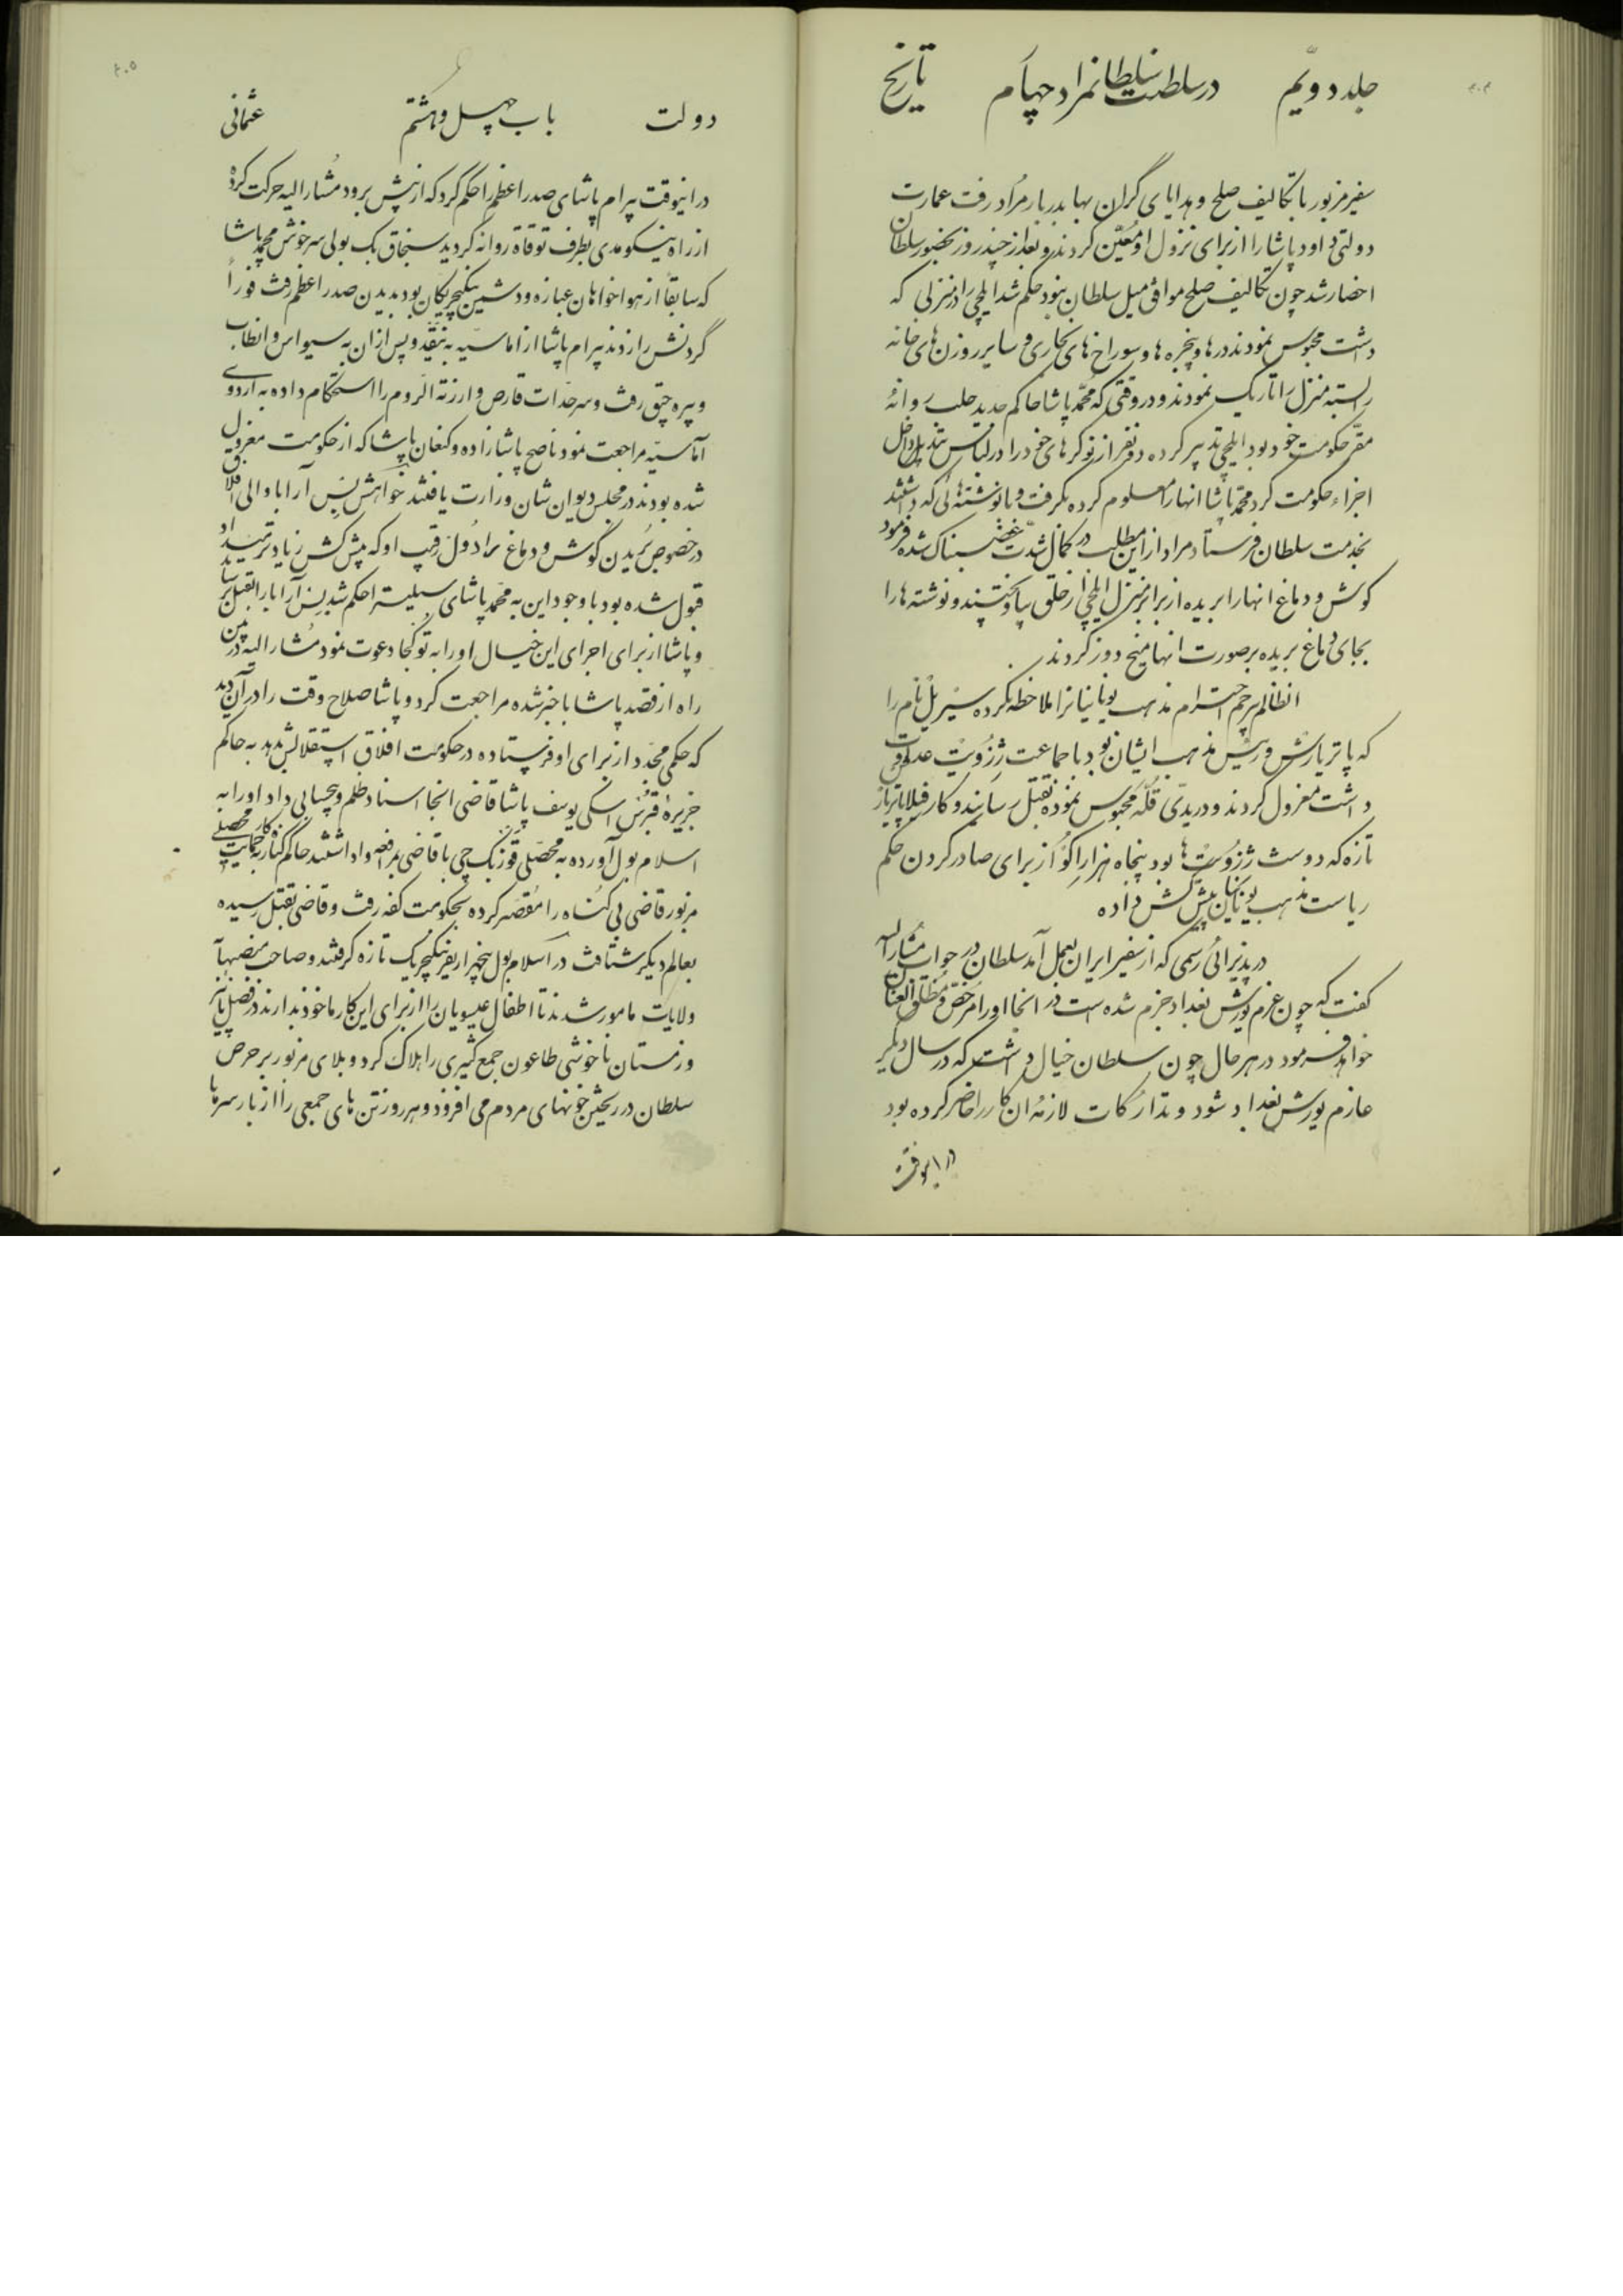 جلد دویّم در سلطنت سلطان مراد چهارم تاریخ
سفیر مزبور با تکالیف صلح و هدایای گران بها بدربار مراد رفت عمارت
دولتی داود پاشا را از برای نزول او معیّن کردند و بعد از چند روز بحضور سلطان
احضار شد چون تکالیف صلح موافق میل سلطان نبود حکم شد ایلچی را در منزلی که
داشت محبوس نمودند درها و پنجره ها و سوراخ های بخاری و سایر روزن های خانه
را بسته منزل را تاریک نمودند و در وقتی که محمّد پاشا حاکم جدید حلب روانۀ
مقرّ حکومت خود بود ایلچی تدبیر کرده دو نفر از نوکرهای خود را در لباس تبدیل داخل
اجزاء حکومت کرد محمّد پاشا انها را معلوم کرده بگرفت و با نوشته هائی که داشتند
بخدمت سلطان فرستاد مراد از این مطلب در کمال شدّت غضبناک شده فرمود
گوش و دماغ انها را بریده از برابر منزل ایلچی از حلق بیاویختند و نوشته ها را
بجای دماغ بریده بر صورت انها میخ دوز کردند
انظالم بیرحم احترام مذهب یونانیانرا ملاحظه نکرده سیریل نام را
که پاتریارش و رئیس مذهب ایشان بود با جماعت ژزویت عداوت
داشت معزول کردند و در یدّی قلّه محبوس نموده بقتل رسانیدند و کارفیلا پاتریارش
تازه که دوست ژزویت ها بود پنجاه هزار اکو از برای صادر کردن حکم
ریاست مذهب یونانیان پیش کش داده
در پذیرائی رسمی که از سفیر ایران بعمل آمد سلطان در جواب مشار الیه
گفت که چون عزم یورش بغداد جزم شده است در انجا او را مرخّص و مطلق العنان
خواهد فرمود در هر حال چون سلطان خیال داشت که در سال دیگر
عازم یورش بغداد شود و تدارکات لازمۀ ان کار را حاضر کرده بود
در اینوقت
دولت باب چهل و هشتم عثمانی
در اینوقت بیرام پاشای صدر اعظم را حکم کرد که از پیش برود مشار الیه حرکت کرده
از راه نیسکومدی بطرف توقاة روانه گردید سنجاق بک بولی سرخوش محمد پاشا
که سابقا از هواخواهان عبازه و دشمن ینگیچریکان بود بدیدن صدر اعظم رفت فوراً
گردنش را زدند بیرام پاشا از اماسیّه به نیقد و پس از ان به سیواس و انطاب
و بیره جق رفت و سرحدّات قارص و ارزنة الرّوم را استحکام داده به اردوی
آماسیّه مراجعت نمود ناصح پاشا زاده و کنعان پاشا که از حکومت معزول
شده بودند در مجلس دیوان شان وزارت یافتند خواهش بِسِ آرابا والی افلاق
در خصوص بریدن گوش و دماغ رادول رقیب او که پیش کش زیادتر میداد
قبول شده بود با وجود این به محمّد پاشای سیلیستره حکم شد بِسِ آرابا را بقتل برساند
و پاشا از برای اجرای این خیال او را به توکجا دعوت نمود مشار الیه در بین
راه از قصد پاشا با خبر شده مراجعت کرد و پاشا صلاح وقت را در آن دید
که حکمی مجدّد از برای او فرستاده در حکومت افلاق استقلالش بدهد به حاکم
جزیرۀ قبرس اسکی یوسف پاشا قاضی انجا اسناد ظلم و بیحسابی داد او را به
اسلام بول آورده به محصّلی قوزبک چی با قاضی بمرافعه واداشتند حاکم گناه کار بحمایت محصّل
مزبور قاضی بی گناه را مقصّر کرده بحکومت کفه رفت و قاضی بقتل رسیده
بعالم دیگر شتافت در اسلام بول پنجهزار نفر ینگیچریک تازه گرفتند و صاحب منصبها
ولایات مامور شدند تا اطفال عیسویان را از برای این کار ماخوذ بدارند در فصل پائیز
و زمستان ناخوشی طاعون جمع کثیری را هلاک کرد و بلای مزبور بر حرص
سلطان در ریختن خونهای مردم می افزود و هر روز تن های جمعی را از بار سرها